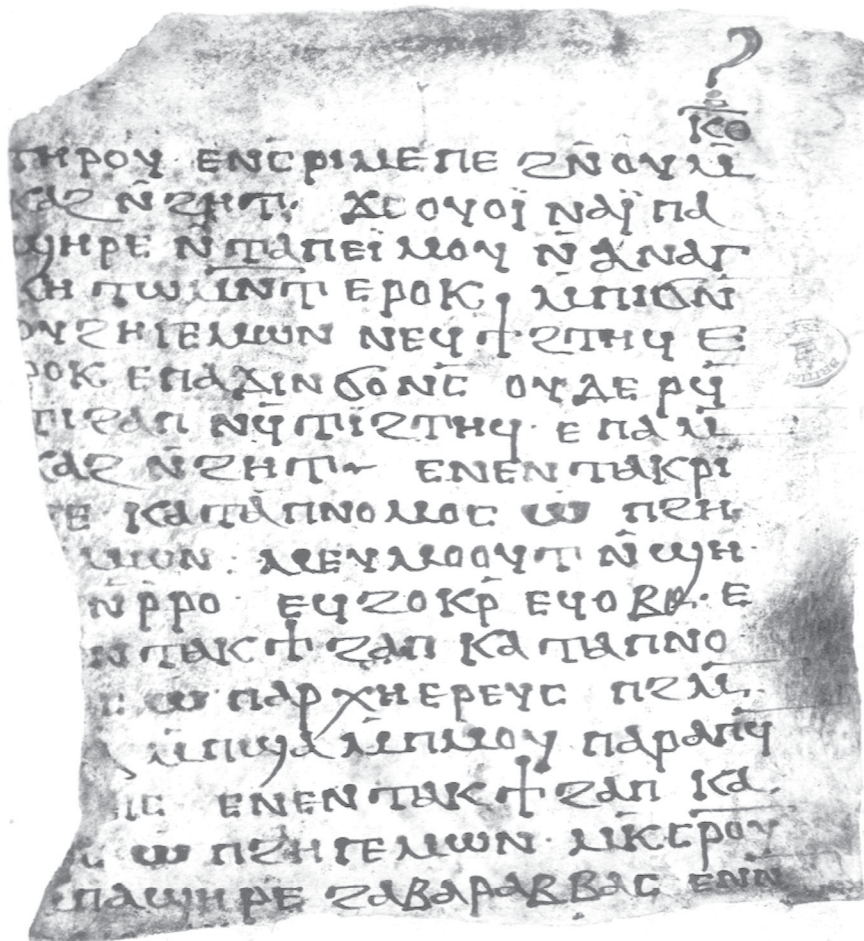 ⲕⲑ
ⲧⲏⲣⲟⲩ ⲉⲛⲥⲣⲓⲙⲉⲡⲉ ϩⲛ̄ⲟⲩⲙ̄
ⲕⲁϩ ⲛ̄ϩⲏⲧ· ϫⲉⲟⲩⲟⲓ̈ ⲛⲁⲓ̈ ⲡⲁ
ϣⲏⲣⲉ ⲛ̄ⲧⲁⲡⲉⲓ̈ⲙⲟⲩ ⲛ̄ⲁⲛⲁⲅ
ⲕⲏ ⲧⲱⲙⲛ̄ⲧ ⲉⲣⲟⲕ· ⲙ̄ⲡⲓϭⲛ̄
ⲟⲩϩⲏⲅⲉⲙⲱⲛ ⲛⲉϥϯϩⲧⲏϥ ⲉ
ⲣⲟⲕ ⲉⲡⲁϫⲓⲛϭⲟⲛⲥ̄ ⲟⲩⲇⲉ ⲣϥ̄
ϯϩⲁⲡ ⲛϥ̄ϯⲓ̈ϩⲧⲏϥ· ⲉⲡⲁⲙ̄
ⲕⲁϩ ⲛ̄ϩⲏⲧ· ⲉⲛⲉⲛⲧⲁⲕⲣⲓ
ⲛⲉ ⲕⲁⲧⲁⲡⲛⲟⲙⲟⲥ ⲱ ⲡϩⲏ
ⲙⲱⲛ· ⲙⲉⲩⲙⲟⲟⲩⲧ ⲛ̄ϣⲏ
ⲛ̄ⲣ̄ⲣⲟ ⲉϥϩⲟⲕⲣ̄ ⲉϥⲟⲃⲉ· ⲉ
ⲛⲧⲁⲕϯϩⲁⲡ ⲕⲁⲧⲁⲡⲛⲟ
ⲱ ⲡⲁⲣⲭⲏⲉⲣⲉⲩⲥ ⲡϩⲙ̄
ⲙ̄ⲡϣⲁ ⲙ̄ⲡⲙⲟⲩ ⲡⲁⲣⲁⲡϥ̄
ⲉⲛⲉⲛⲧⲁⲕϯϩⲁⲡ ⲕⲁ
ⲱ ⲡϩⲏⲅⲉⲙⲱⲛ· ⲙⲕⲥⲣ̄ⲟⲩ
ⲡⲁϣⲏⲣⲉ ϩⲁⲃⲁⲣⲁⲃⲃⲁⲥ ⲉⲛⲛ